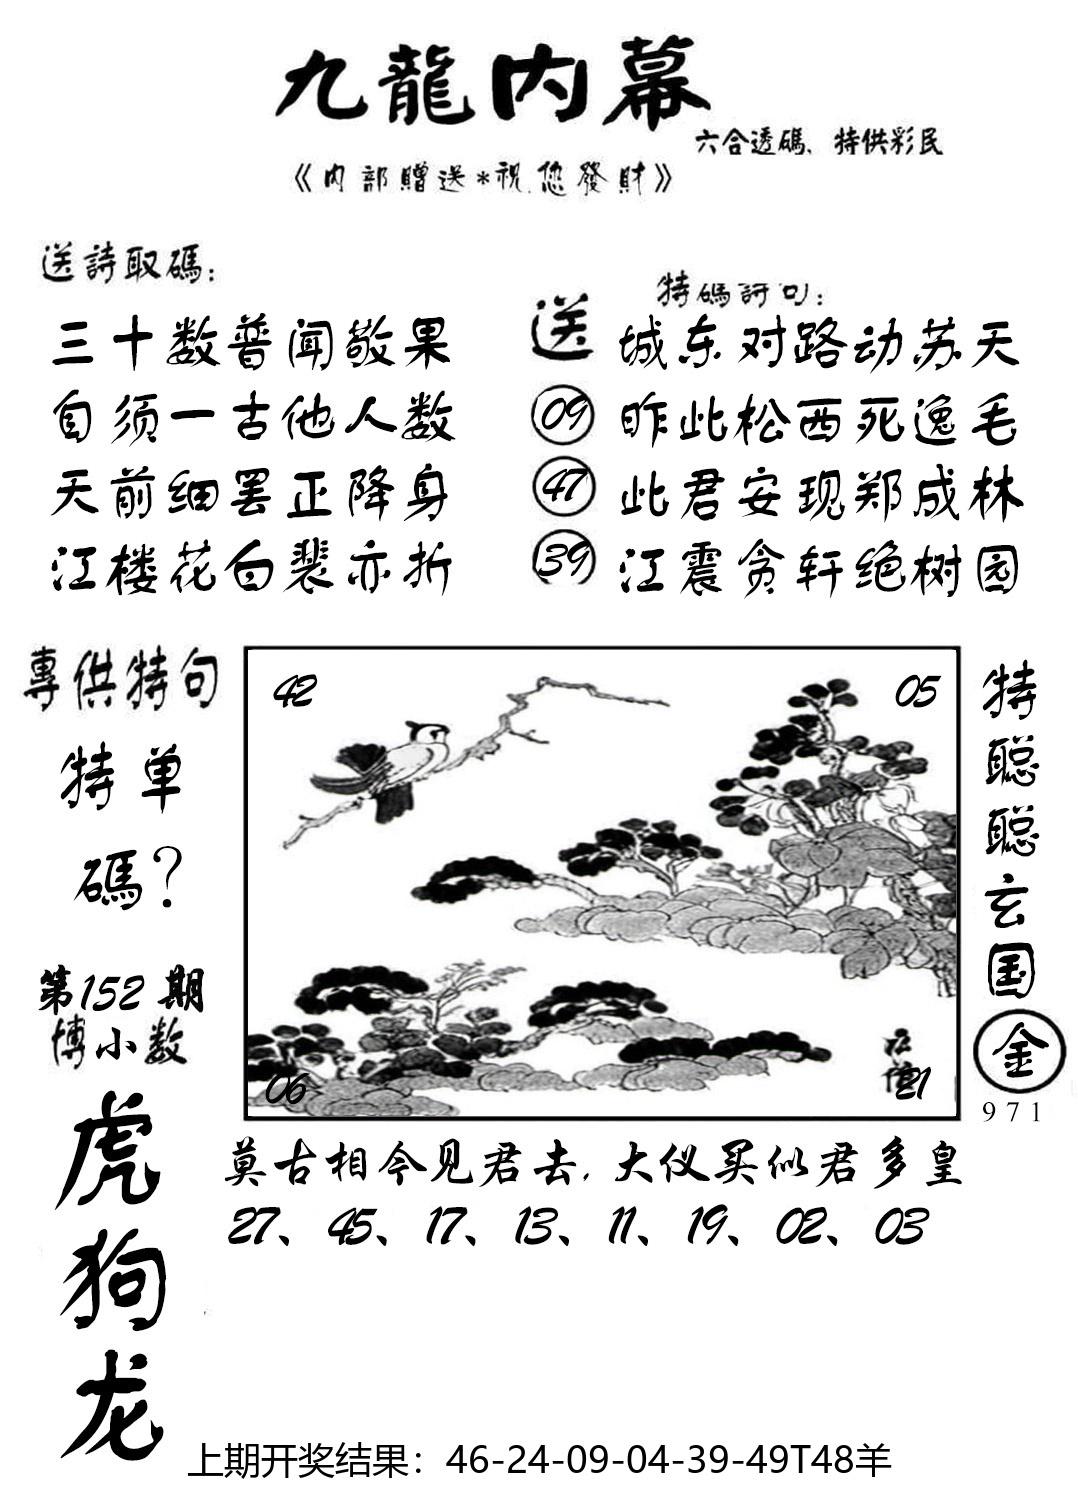 九龍内幕
六合透碼、特供彩民
《内部贈送*祝您發財》
送詩取碼：
三十数普闻敬果
自须一古他人数
天前细罢正降身
江楼花白裴亦折
送
09
47
39
特碼詩句：
城东对路动苏天
昨此松西死逸毛
此君安现郑成林
江震贪轩绝树园
專供特句
特单
碼？
第152期
博小数
虎
狗
龙
42
05
06
21
特聪聪玄国
金
971
莫古相今见君去，大仪买似君多皇
27、45、17、13、11、19、02、03
上期开奖结果：46-24-09-04-39-49T48羊